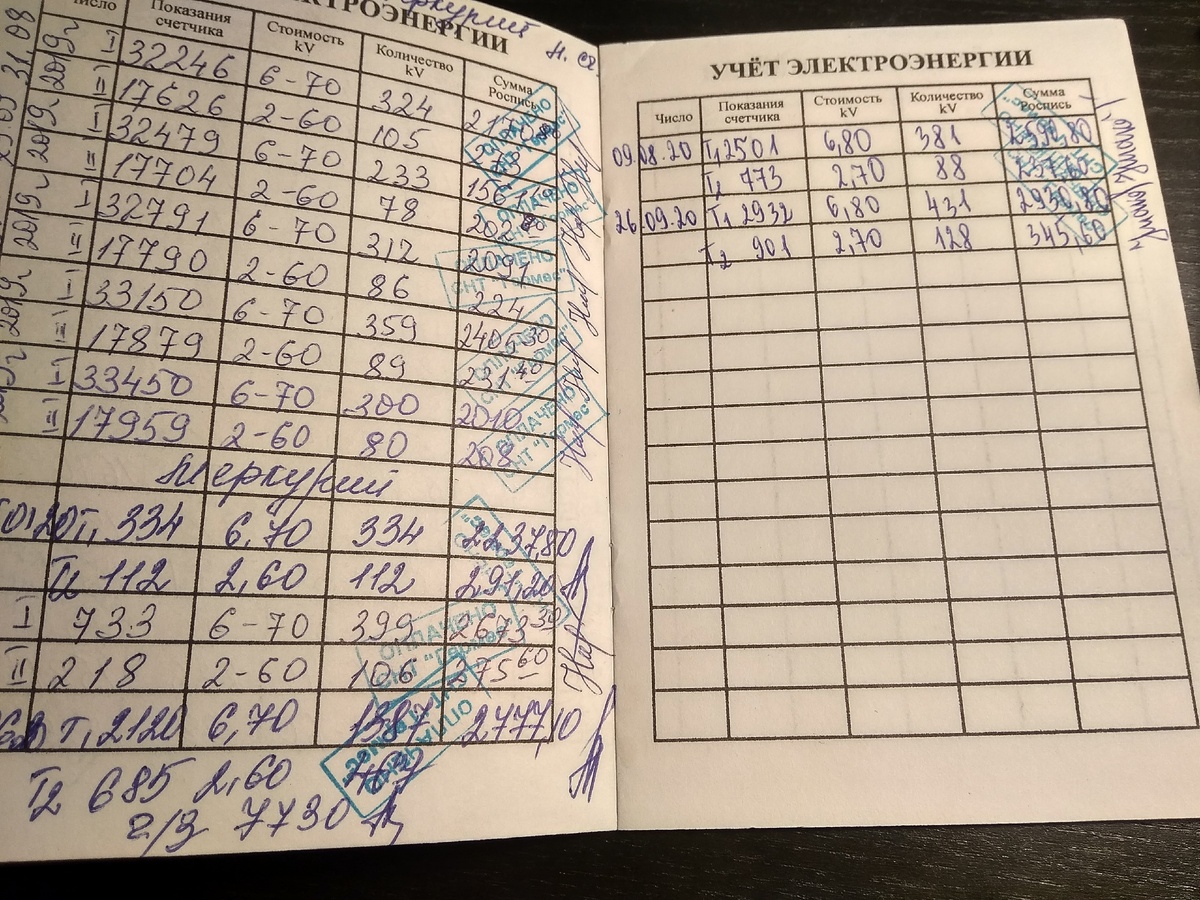 ЭЛЕКТРОЭНЕРГИИ
Число Показания счетчика Стоимость kV Количество kV Сумма Роспись
I 32246 6-70 324
II 17626 2-60 105
I 32479 6-70 233
II 17704 2-60 78
I 32791 6-70 312
II 17790 2-60 86 224
I 33150 6-70 359 2405 30
II 17879 2-60 89 231 40
I 33450 6-70 300 2010
II 17959 2-60 80 208
Меркурий
T1 334 6,70 334 2237,80
T2 112 2,60 112 291,20
I 733 6-70 399 2673 30
II 218 2-60 106 275 60
T1 2120 6,70 1387
T2 685 2,60 467
7730
ОПЛАЧЕНО
СНТ "Гермес"
УЧЁТ ЭЛЕКТРОЭНЕРГИИ
Число Показания счетчика Стоимость kV Количество kV Сумма Роспись
09.08.20 T1 2501 6,80 381 2590,80
T2 773 2,70 88 237,60
26.09.20 T1 2932 6,80 431 2930,80
T2 901 2,70 128 345,60